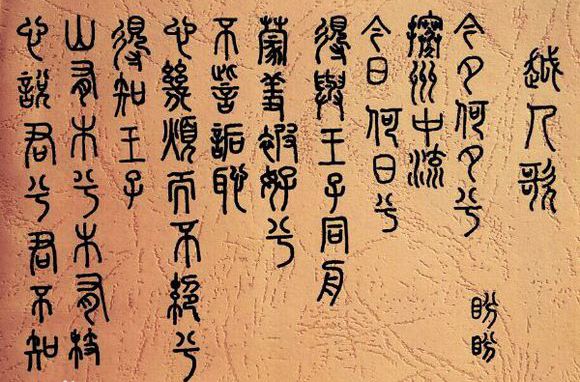 越人歌
盼盼
今夕何夕兮
搴州中流
今日何日兮
得與王子同舟
蒙羞被好兮
不訾詬恥
心幾煩而不絕兮
得知王子
山有木兮木有枝
心說君兮君不知